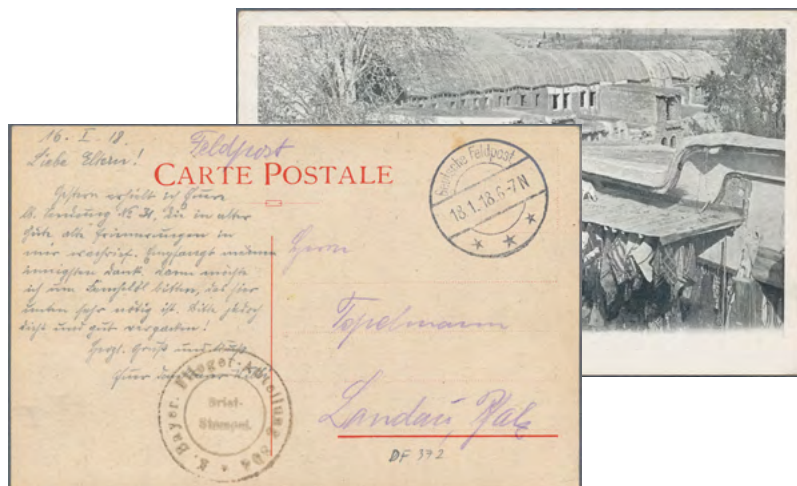 16. I. 18.
Liebe Eltern!
Feldpost
CARTE POSTALE
Deutsche Feldpost
18.1.18. 6-7N
Gestern erhielt ich Euere
lb. Sendung №, die in alter
Güte alte Erinnerungen in
mir wachrief. Empfangt meinen
innigsten Dank. Dann möchte
ich um bitten, das hier
unten sehr nötig ist. Bitte jedoch
dicht und gut verpacken!
Herzl. Gruß und Kuß
Euer
Herrn
Topelmann
Landau, Pfalz
K. Bayer. Flieger-Abteilung 304 *
Brief-
Stempel.
DF 392